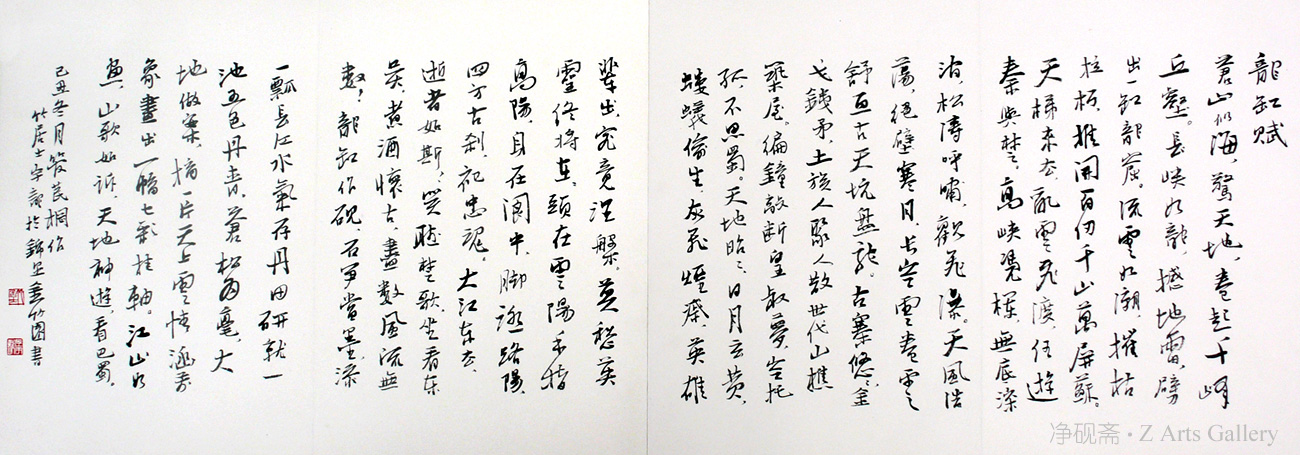 龍缸賦
蒼山似海，驚天地，卷起千峰
丘壑。長峽如龍，撼地雷，劈
出一缸龍窟。流雲如潮，摧枯
拉朽，推開百仞千山萬屏蘇。
天梯來去，亂雲飛渡，任遊
秦與楚。高峽凳樑，無底深
淵，松濤呼嘯，歡飛瀑。天風浩
蕩，絕壁寒月，长空雲卷雲
舒，亘古天坑盤龍。古寨悠悠，金
戈鐵矛，土族人聚人散世代山樵
築屋。編鐘敲斷皇叔夢，空托
孤，不思蜀。天地昭昭，日月立黄，
螻蟻偷生，灰飛煙滅，英雄
輩出，究竟涅槃。英嵇英
靈終將在，頭在雲陽手指
高陽，身在閬中，脚踏路陽，
四方古刹，祀忠魂。大江东去，
逝者如斯，笑聽楚歌，坐看东
吴，煮酒懷古，盡數風流無
數，龍缸作硯，石笋當墨，深
一瓢長江水氣存丹田，研就一
池五色丹青，蒼松為毫，大
地做案，摘一片天上雲情
象畫出一幡七彩挂軸。江山如
畫，山歌如訴，天地神遊，看巴蜀。
己丑冬月 桐作
竹居士 於錦 竹園書
净砚斋 · Z Arts Gallery